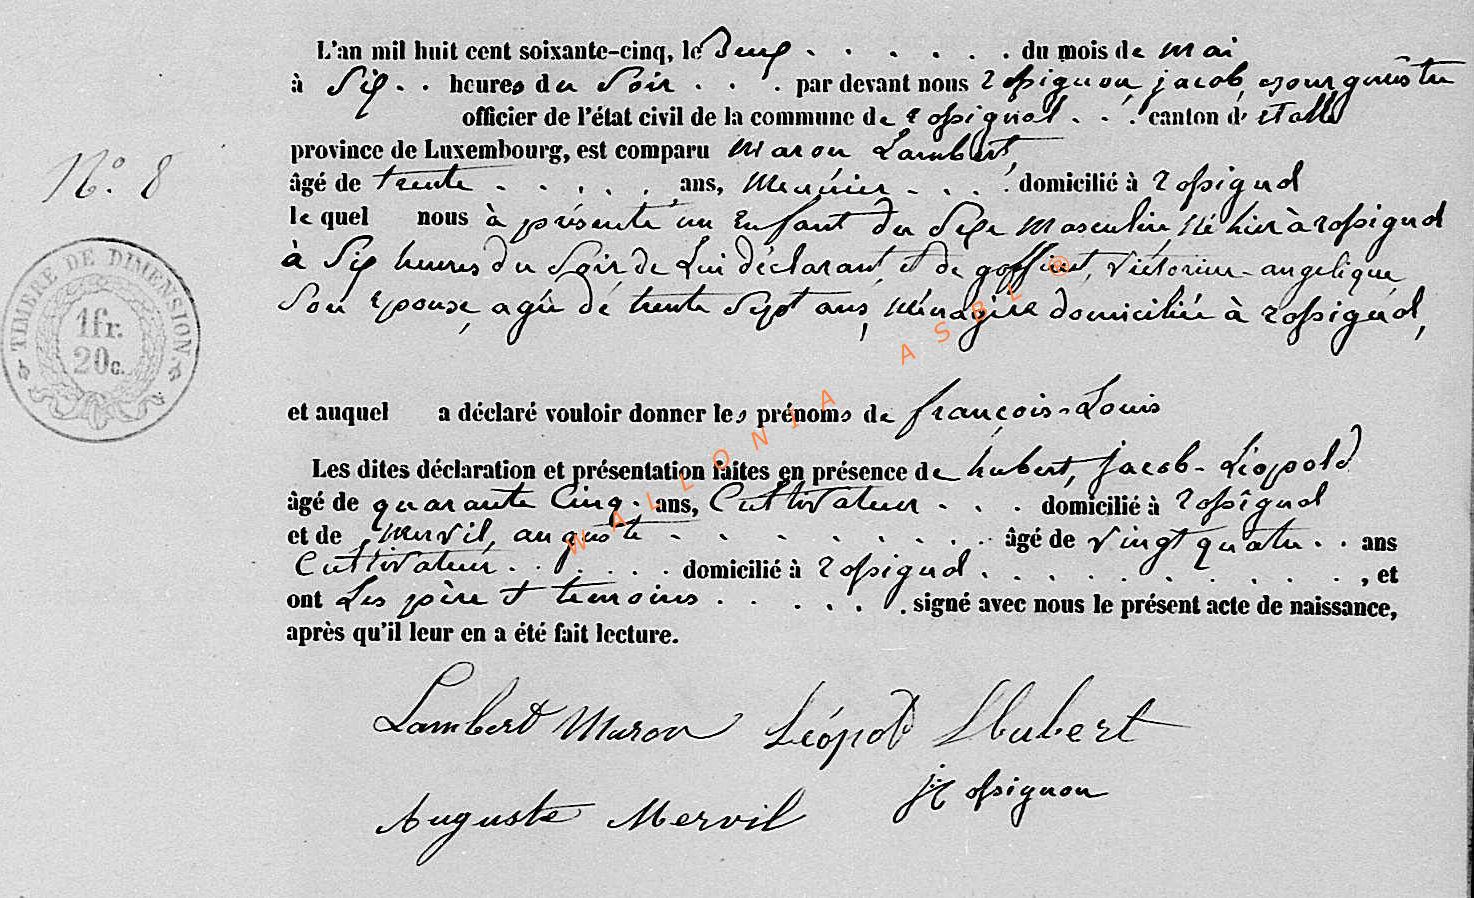 L'an mil huit cent soixante-cinq, le Deux . . . . . . du mois de mai
à Six . . heures du Soir . . . . par devant nous rossignon, jacob, bourgmestre
officier de l'état civil de la commune de rossignol . . . canton d'étalle
N° 8
province de Luxembourg, est comparu maron Lambert,
âgé de trente . . . . . ans, meunier . . . domicilié à rossignol
le quel nous à présenté un enfant du sexe masculin, né hier à rossignol
à Six heures du Soir de Lui déclarant et de goffinet, victorine-angelique
Son epouse, agée de trente Sept ans, ménagère domiciliée à rossignol,
TIMBRE DE DIMENSION
1fr.
20c.
et auquel a déclaré vouloir donner les prénoms de françois-Louis
Les dites déclaration et présentation faites en présence de hubert, jacob-Léopold
âgé de quarante Cinq . ans, Cultivateur . . . domicilié à rossignol
et de mervil, auguste . . . . . . . . . âgé de vingt quatre . . ans
Cultivateur . . . . . . domicilié à rossignol . . . . . . . . . . . , et
ont Les père et temoins . . . . . . signé avec nous le présent acte de naissance,
après qu'il leur en a été fait lecture.
WALLONIA ASBL ®
Lambert Maron Léopold Hubert
j: Rossignon
Auguste Mervil